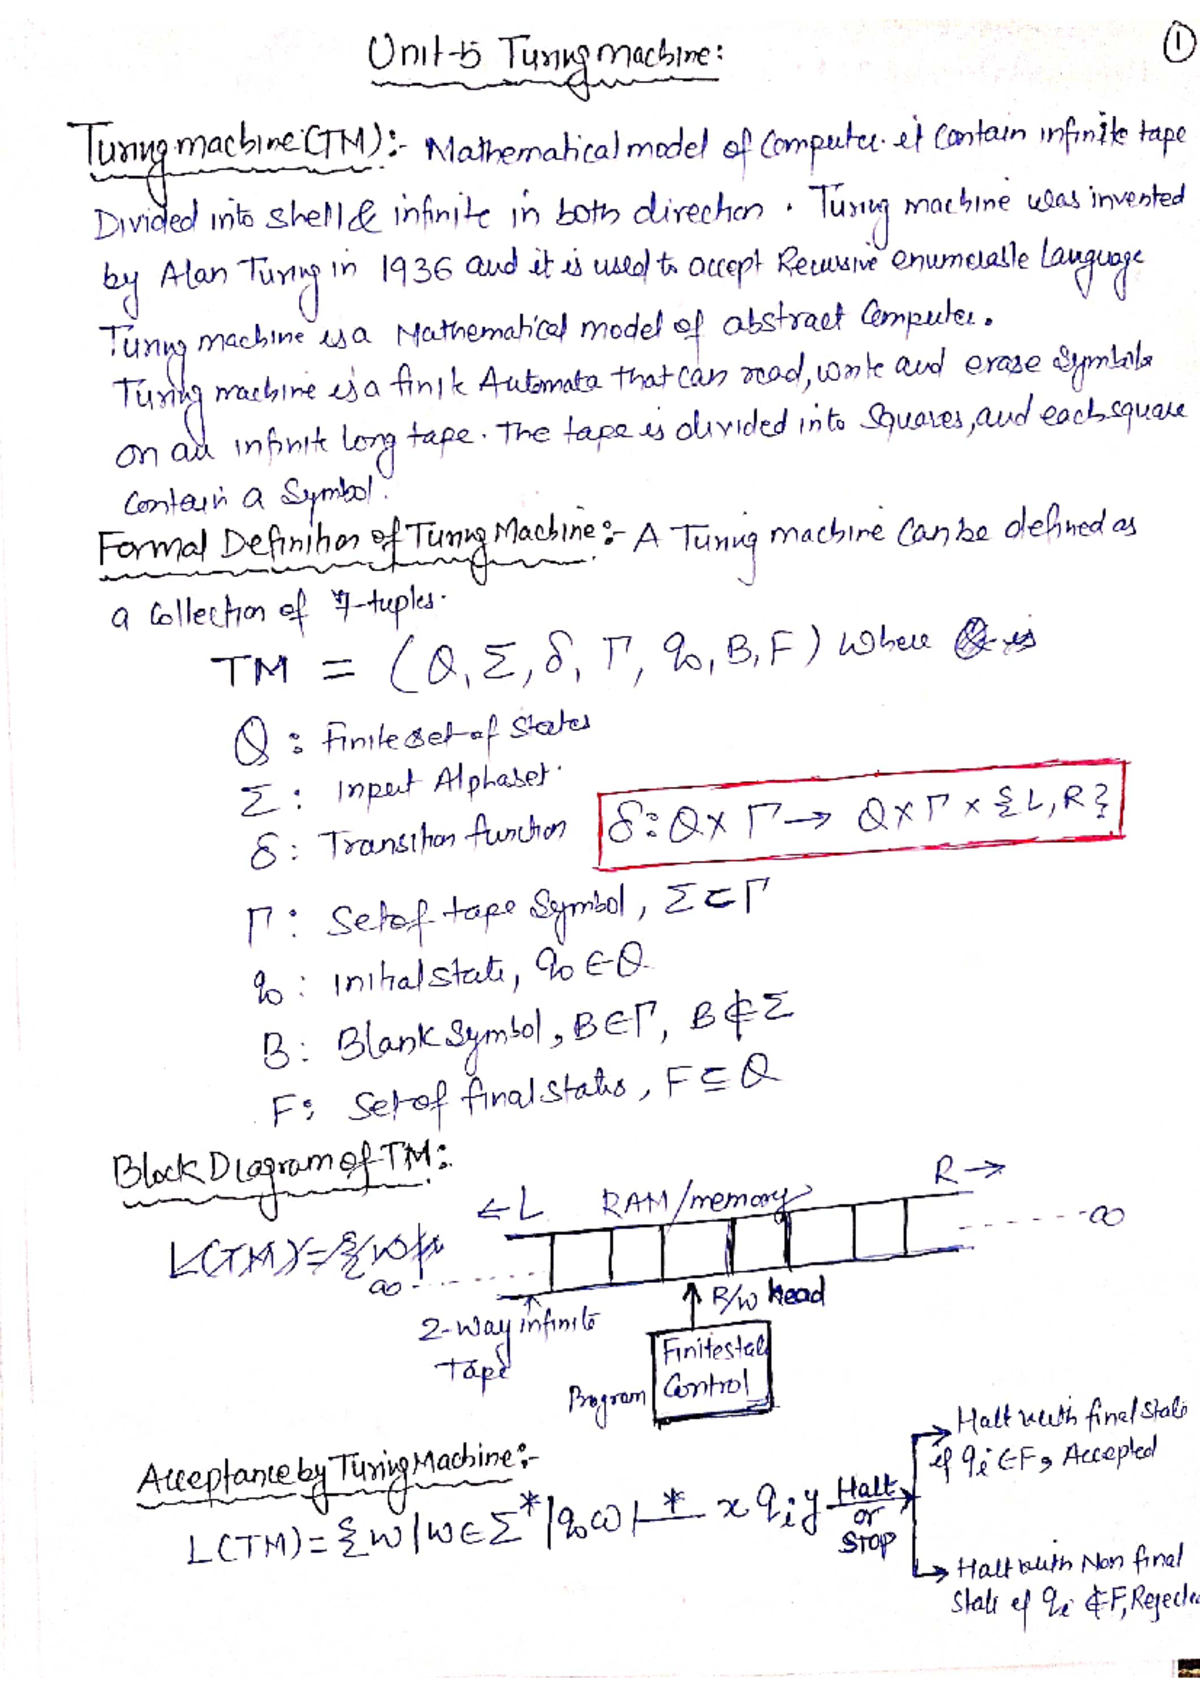 Unit-5 Turing machine:
1
Turing machine (TM):- Mathematical model of computer. it contain infinite tape
Divided into shell & infinite in both direction. Turing machine was invented
by Alan Turing in 1936 and it is used to accept Recursive enumerable Language
Turing machine is a Mathematical model of abstract computer.
Turing machine is a finite Automata that can read, write and erase symbols
on an infinite long tape. The tape is divided into squares, and each square
contain a symbol.
Formal Definition of Turing Machine:- A Turing machine can be defined as
a collection of 7-tuples.
TM = (Q, Σ, δ, Γ, q0, B, F) where
Q : Finite set of states
Σ : Input Alphabet.
δ : Transition function δ: Q × Γ → Q × Γ × {L, R}
Γ : Set of tape symbol, Σ ⊂ Γ
q0 : initial state, q0 ∈ Q
B : Blank symbol, B ∈ Γ, B ∉ Σ
F : Set of final states, F ⊆ Q
Block Diagram of TM:
← L RAM/memory R →
L(TM) = {w/
∞ ∞
2-way infinite
Tape
R/W head
Finite state
Control
Program
Acceptance by Turing Machine:-
L(TM) = {w | w ∈ Σ* | q0w ⊢* x qi y Halt or STOP
Halt with final state
if qi ∈ F, Accepted
Halt with Non final
state if qi ∉ F, Rejected